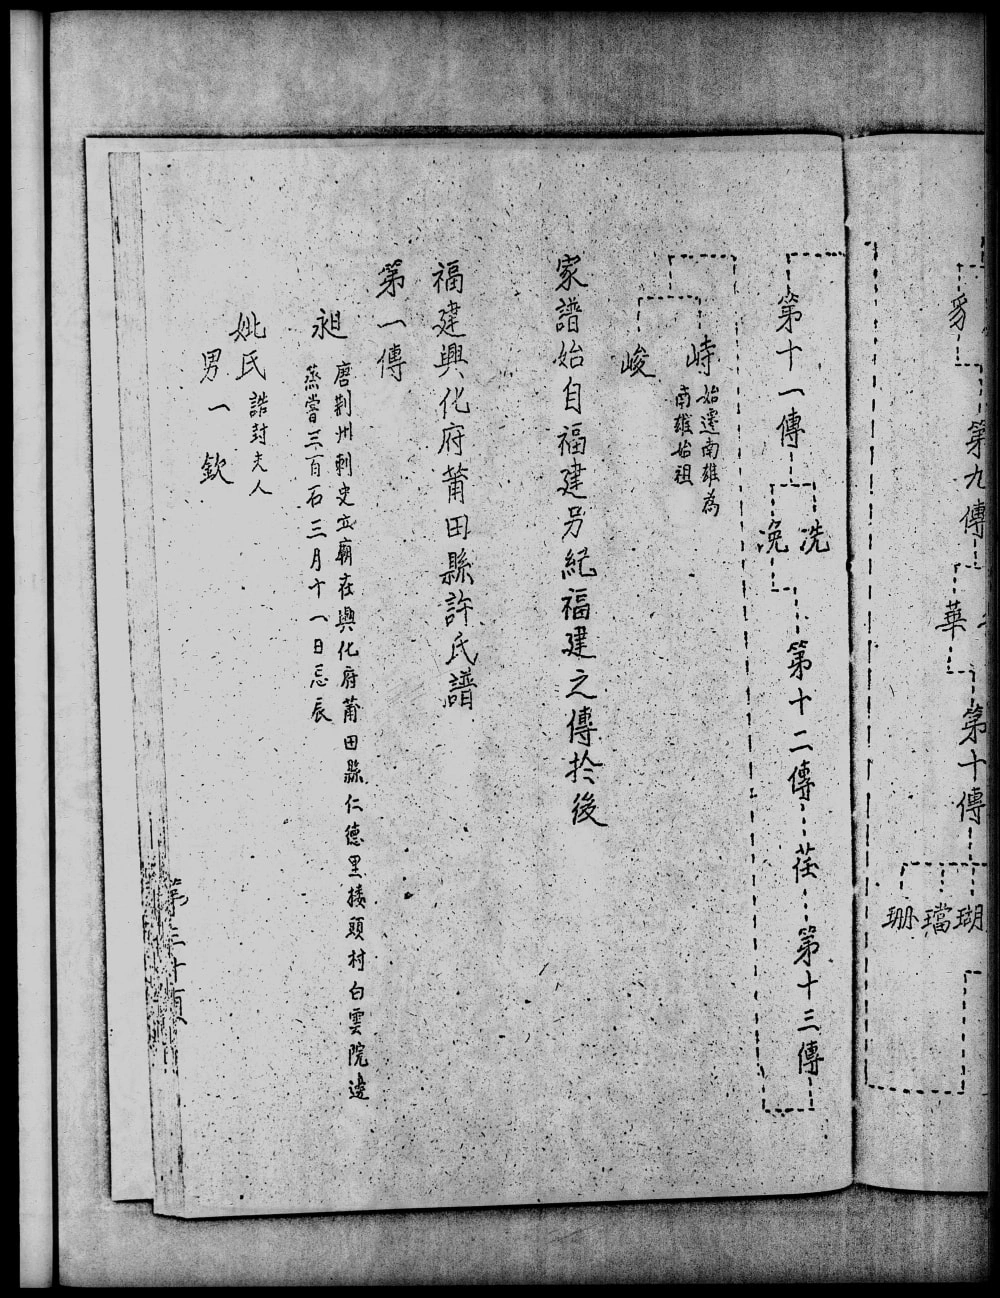 第九傳
華
第十傳
瑚
璫
珊
第十一傳
冼
浼
第十二傳
荏
第十三傳
峙
始遷南雄為
南雄始祖
峻
家譜始自福建另紀福建之傳於後
福建興化府莆田縣許氏譜
第一傳
昶
唐荆州刺史立廟在興化府莆田縣仁德里接頭村白雲院邊
蒸嘗三百石三月十一日忌辰
姚氏
誥封夫人
男一欽